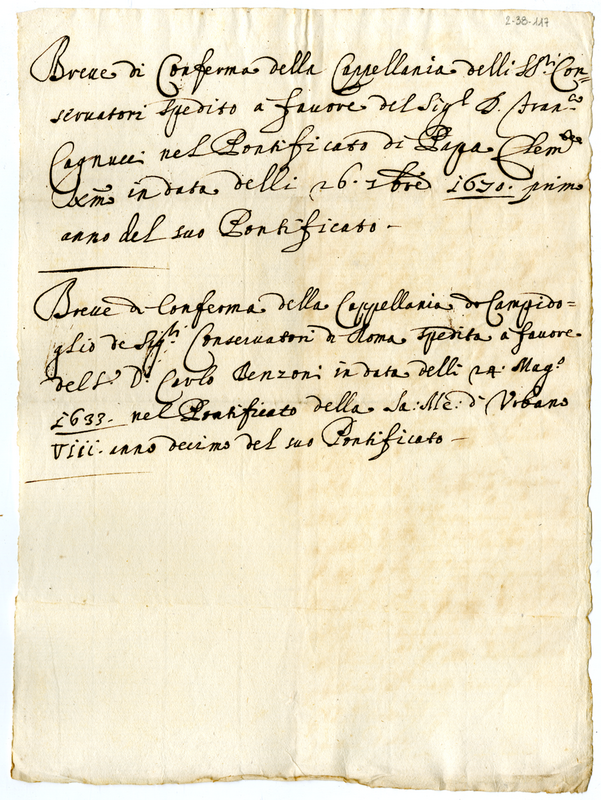 2-38-117
Breve di Conferma della Cappellania delli SS.ri Con=
servatori spedito a favore del Sig.r D. Fran.co
Cagnucci nel Pontificato di Papa Clem.te
Xmo in data delli 26. 7bre 1670. primo
anno del suo Pontificato -
Breve di Conferma della Cappellania di Campido=
glio de Sig.ri Conservatori di Roma spedita a favore
del S.r D. Carlo Benzoni in data delli 24. Mag.o
1633. nel Pontificato della Sa: Me: di Urbano
VIII. anno decimo del suo Pontificato -